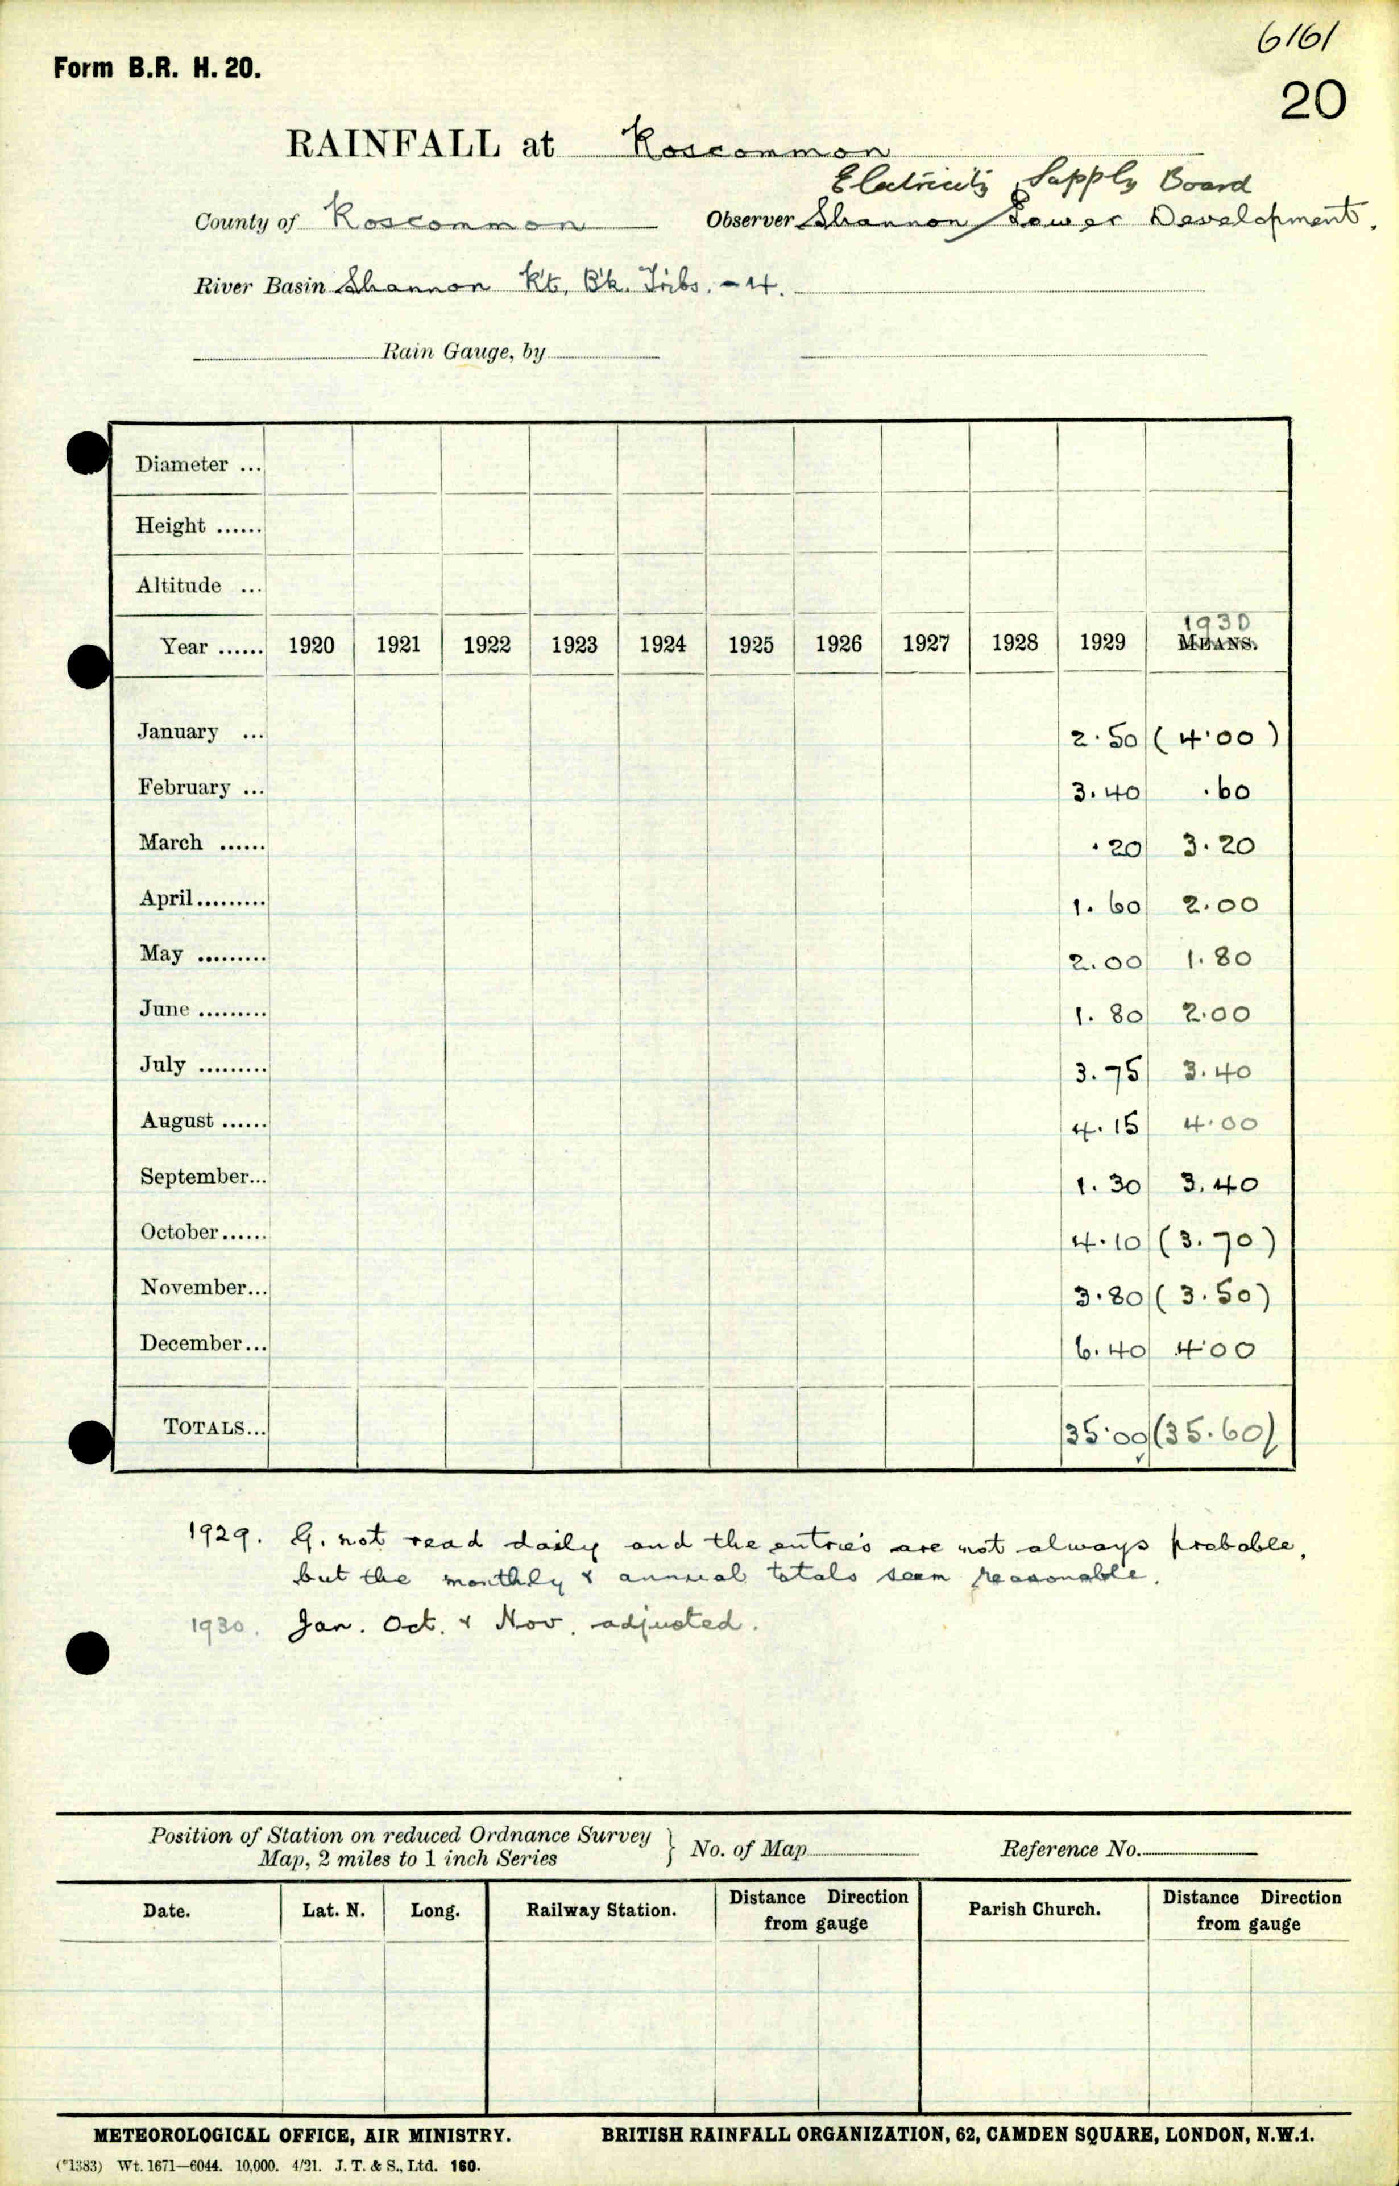 6161
Form B.R. H. 20.
20
RAINFALL at Roscommon
Electricity Supply Board
County of Roscommon Observer Shannon Power Development.
River Basin Shannon Rt. Bk. Tribs. - 4.
Rain Gauge, by
Diameter ...
Height ......
Altitude ...
1930
Year ...... 1920 1921 1922 1923 1924 1925 1926 1927 1928 1929 MEANS.
January ... 2.50 (4.00)
February ... 3.40 .60
March ...... .20 3.20
April ......... 1.60 2.00
May ......... 2.00 1.80
June ......... 1.80 2.00
July ......... 3.75 3.40
August ...... 4.15 4.00
September... 1.30 3.40
October...... 4.10 (3.70)
November... 3.80 (3.50)
December... 6.40 4.00
TOTALS... 35.00 (35.60)
1929. G. not read daily and the entries are not always probable,
but the monthly & annual totals seem reasonable.
1930. Jan. Oct. & Nov. adjusted.
Position of Station on reduced Ordnance Survey
Map, 2 miles to 1 inch Series } No. of Map Reference No.
Date. Lat. N. Long. Railway Station. Distance Direction from gauge Parish Church. Distance Direction from gauge
METEOROLOGICAL OFFICE, AIR MINISTRY. BRITISH RAINFALL ORGANIZATION, 62, CAMDEN SQUARE, LONDON, N.W.1.
(*1383) Wt. 1671—6044. 10,000. 4/21. J. T. & S., Ltd. 160.